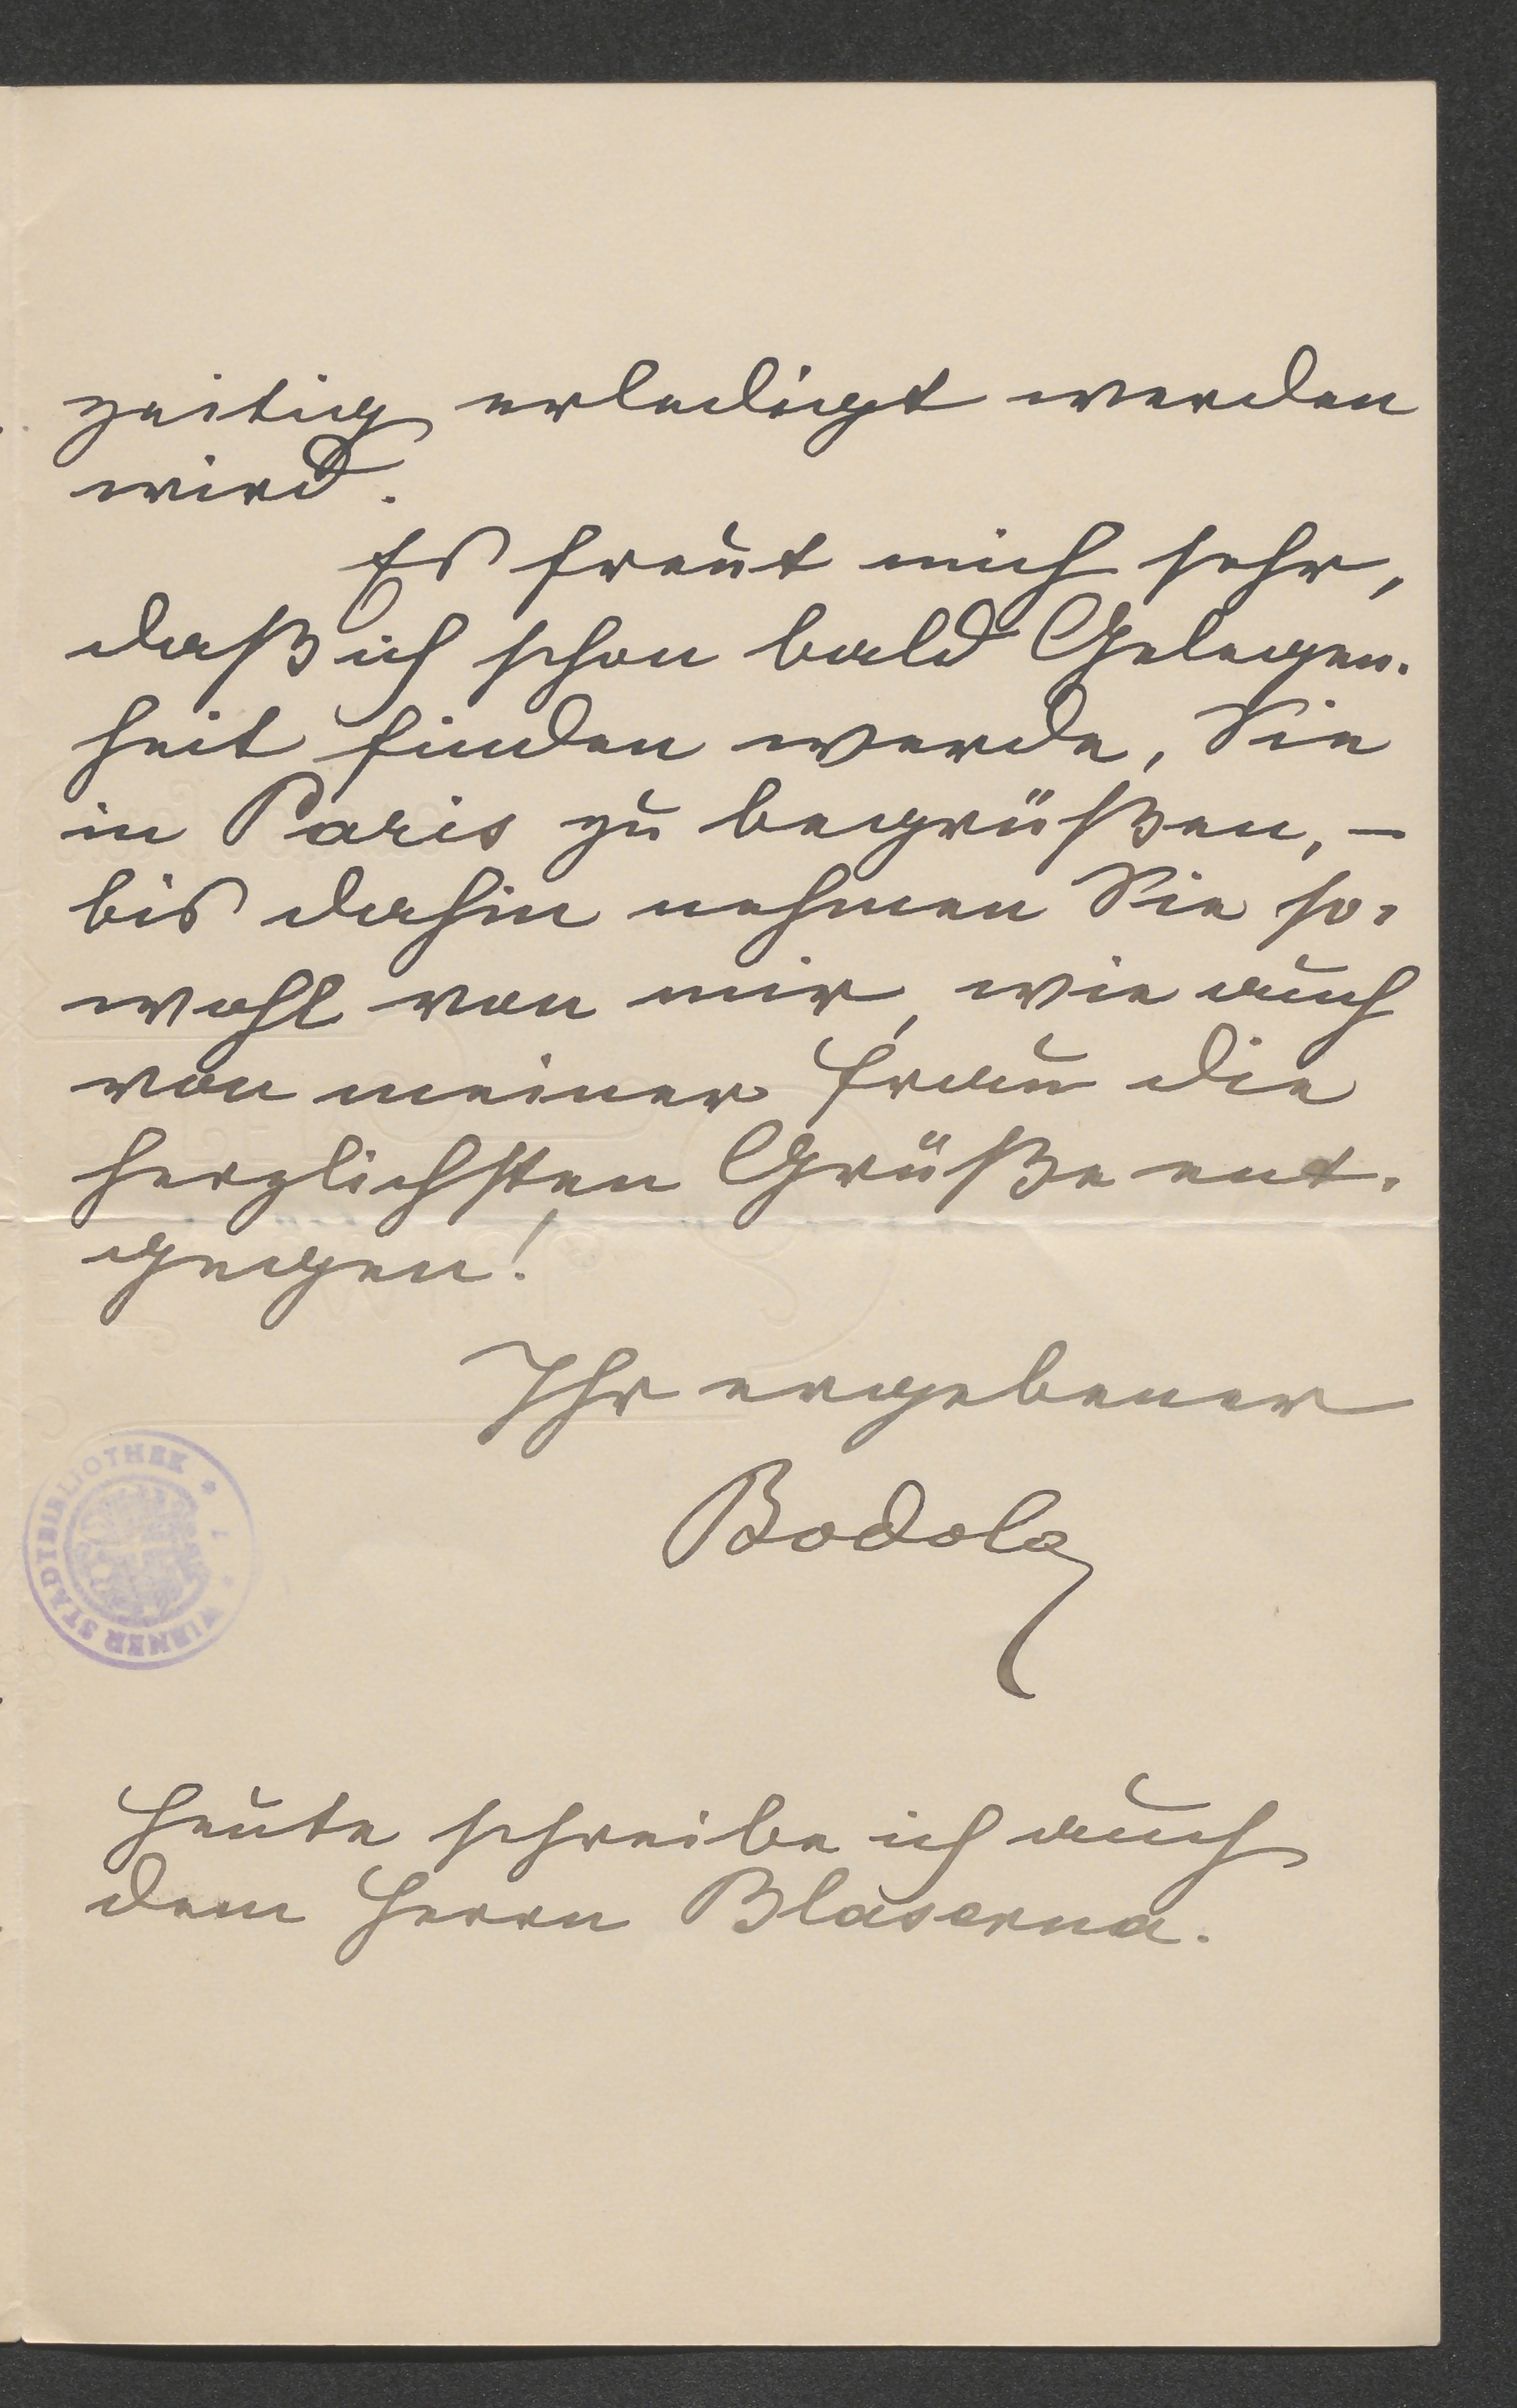 zeitig erledigt werden
wird.
Es freut mich sehr,
daß ich schon bald Gelegen-
heit finden werde, Sie
in Paris zu begrüßen, –
bis dahin nehmen Sie so-
wohl von mir, wie auch
von meiner Frau die
herzlichsten Grüße ent-
gegen!
Ihr ergebener
Bodola
WIENER STADTBIBLIOTHEK
Heute schreibe ich auch
dem Herrn Blaserna.